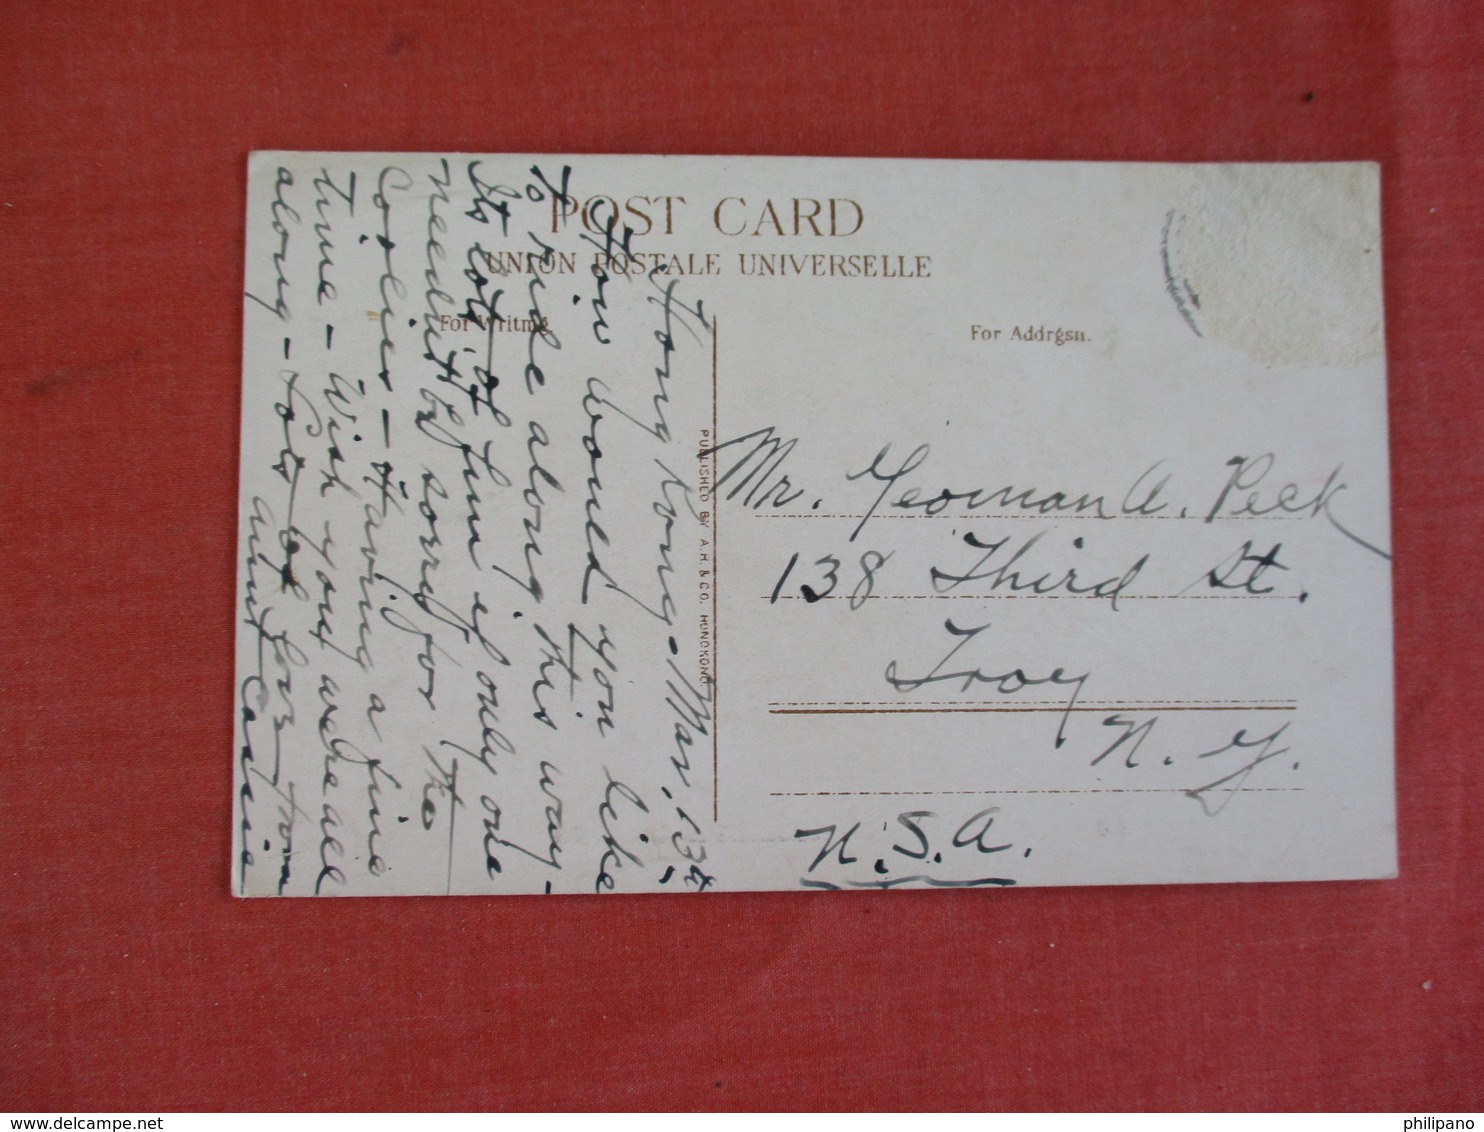 POST CARD
UNION POSTALE UNIVERSELLE
For Writing
For Addrgsn.
PUBLISHED BY A.H. & CO. HONGKONG
Hong Kong - Mar. 13th
How would you like
to ride along this way -
Its lots of fun if only one
need n't be sorry for the
Coolies - Having a fine
time - Wish you were all
along - Lots of love from
Aunt Carrie
Mr. Yeoman A. Peck
138 Third St.
Troy
N. Y.
U.S.A.
philipano
delcampe.net